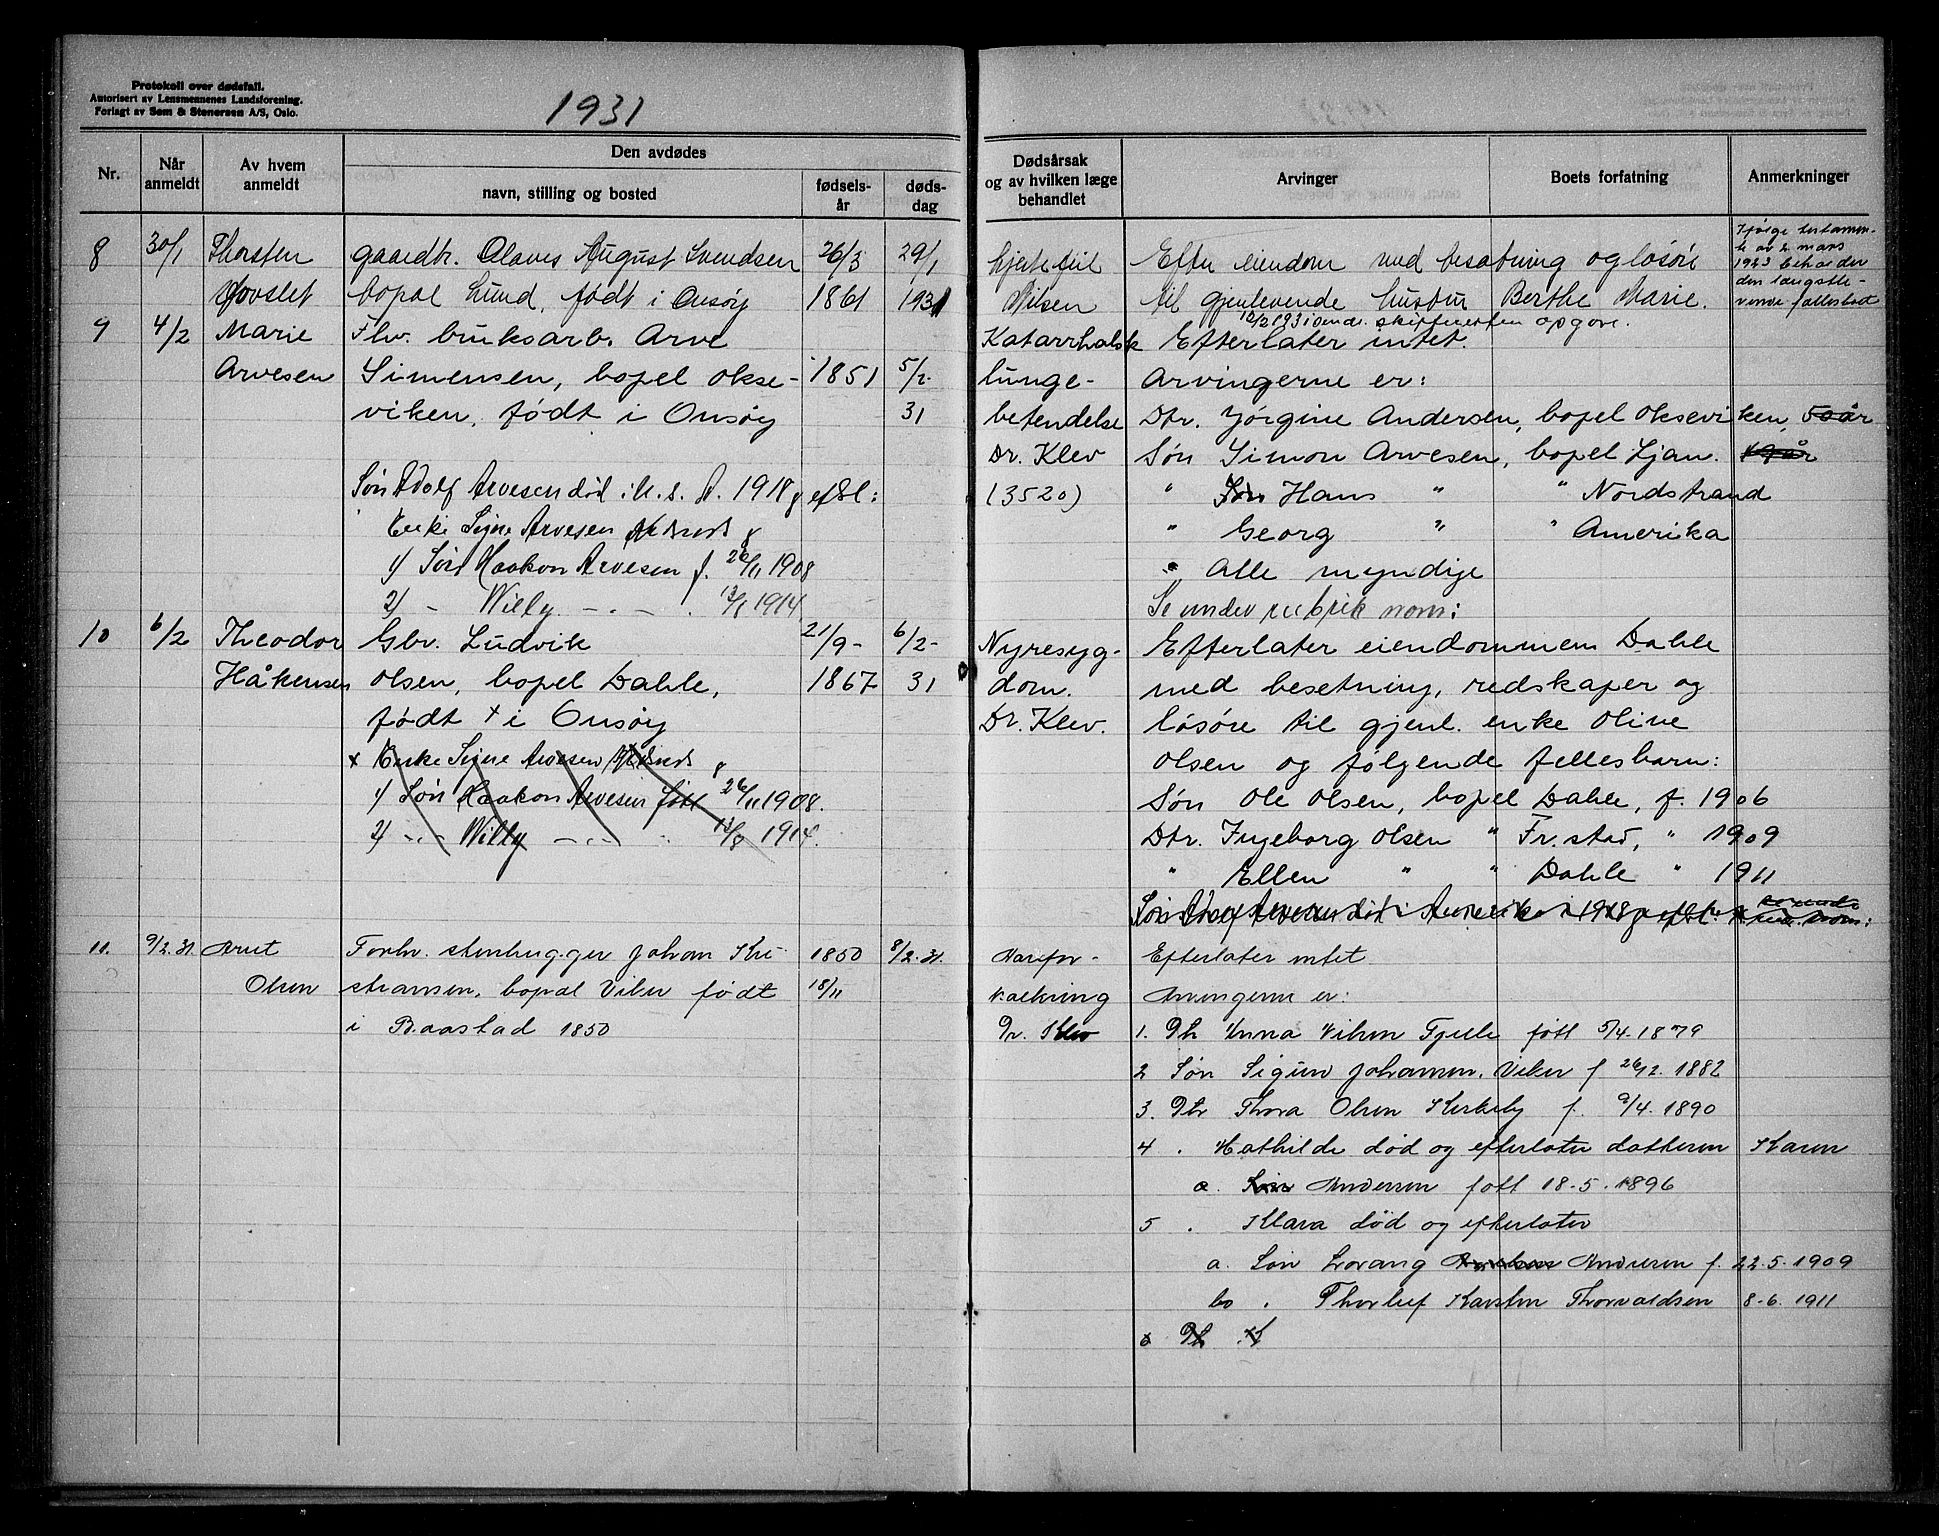 Protokoll over dødsfall.
Autorisert av Lensmennenes Landsforening.
Forlagt av Sem & Stenersen A/S, Oslo.
1931
Nr.
Når anmeldt
Av hvem anmeldt
Den avdødes
navn, stilling og bosted
fødsels-år
døds-dag
Dødsårsak og av hvilken læge behandlet
Arvinger
Boets forfatning
Anmerkninger
8 30/1 Thorsten gaardbr. Olaves August Svendsen 26/3 29/1
bopæl Lund, født i Onsøy 1861 1931
Hjertefeil
Nilsen
Efter eiendom med besætning og løsøre
til gjenlevende hustru Berthe Marie.
12/2 1931 skifteretten opgave.
Ifølge testamen-
te av 2 mars
1923 beholder
den længstle-
vende fællesboet
9 4/2 Marie Fhv. bruksarb. Arve
Arvesen Simensen, bopel Okse- 1851 5/2-
viken, født i Onsøy 31
Søn Adolf Arvesen død i U.S.A. 1918 & efl:
Enke Signe Arvesen
1) Søn Haakon Arvesen f. 26/11 1908
2) - Willy - - - 12/8 1914
Katarrhalsk
lunge-
betendelse
Dr. Klev
(3520)
Efterlater intet.
Arvingerne er:
Dtr. Jørgine Andersen, bopel Okseviken, 50 år
Søn Simon Arvesen, bopel Ljan.
" Hans " " Nordstrand
" Georg " " Amerika
" Alle myndige
Se under rubrik navn:
10 6/2 Theodor Gbr. Ludvik 21/9- 6/2-
Håkensen Olsen, bopel Dahle, 1867 31
født i Onsøy
x Enke Signe Arvesen
1) Søn Haakon Arvesen født 26/11 1908.
2) - - Willy - - - 12/8 1914.
Nyresyg-
dom.
Dr. Klev.
Efterlater eiendommen Dahle
med besetning, redskaper og
løsøre til gjenl. enke Oline
Olsen og følgende fellesbarn:
Søn Ole Olsen, bopel Dahle, f. 1906
Dtr. Ingeborg Olsen " Fr.stad, " 1909
" Ellen " " Dahle " 1911
Søn Adolf Arvesen død i Amerika i 1918
11. 9/2.31 Arnt Forhv. stenhugger Johan Kri- 1850 8/2.31.
Olsen stiansen, bopæl Viker født 18/11
i Baastad 1850
Aarefor-
kalkning
Dr. Klev
Efterlater intet
Arvingerne er:
1. Dtr Anna Nilsen Fjelle født 5/4.1879
2 Søn Sigurd Johansen, Viker f 26/12. 1882
3. Dtr Thora Olsen Kirkeby f. 9/4.1890
4 . Mathilde død og efterlater datteren Karen
a. Andersen født 18-5.1896
5 . Klara død og efterlater
a. Søn Lorang Andersen f. 22.5.1909
b . Thorleif Karsten Thorvaldsen 8-6.1911